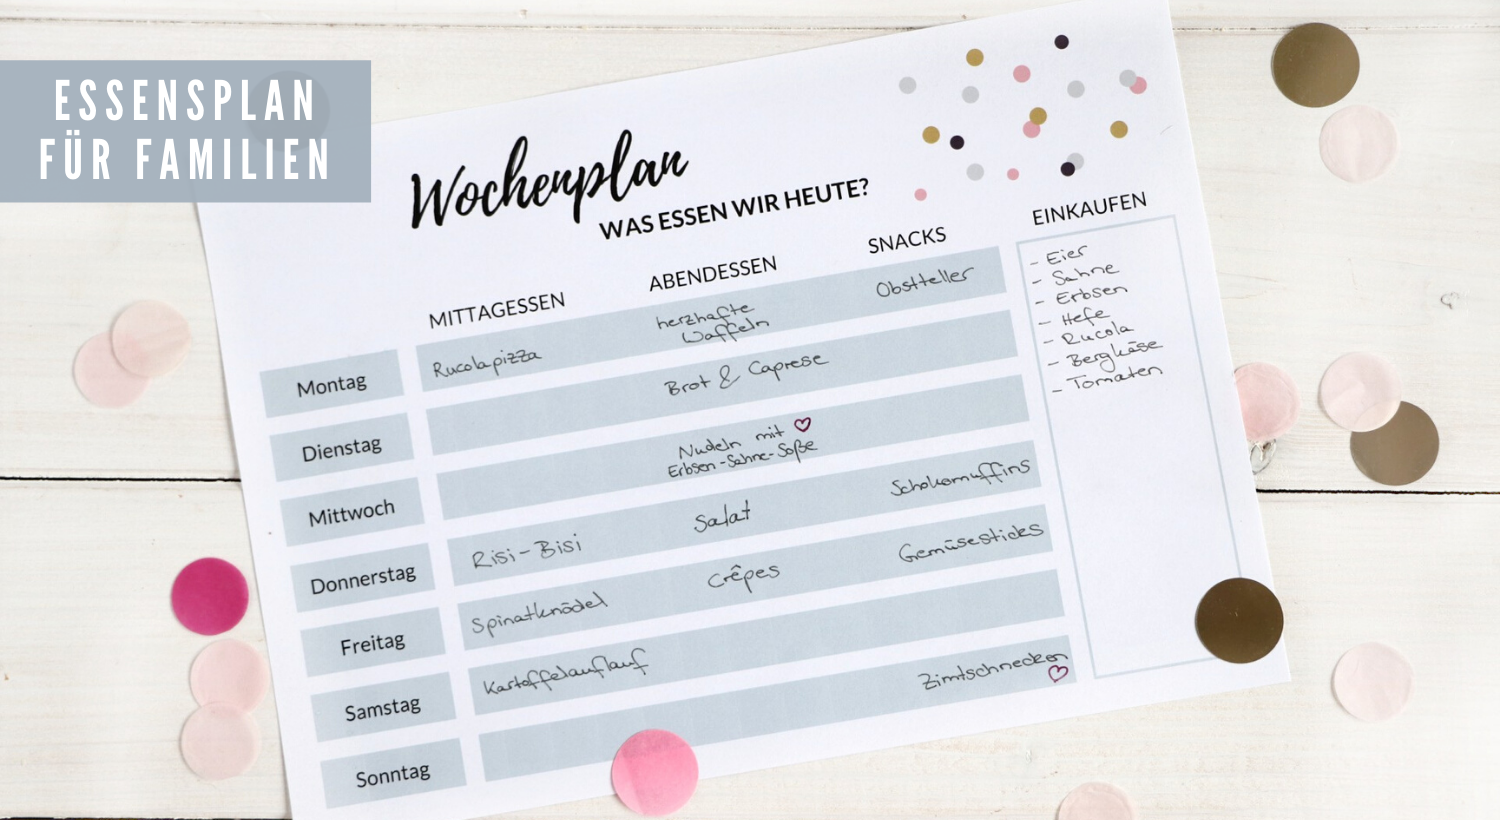 ESSENSPLAN
FÜR FAMILIEN
Wochenplan
WAS ESSEN WIR HEUTE?
MITTAGESSEN ABENDESSEN SNACKS EINKAUFEN
Montag Rucolapizza herzhafte Waffeln Obstteller
Dienstag Brot & Caprese
Mittwoch Nudeln mit ♡
Erbsen-Sahne-Soße
Donnerstag Risi-Bisi Salat Schokomuffins
Freitag Spinatknödel Crêpes Gemüsesticks
Samstag Kartoffelauflauf
Sonntag Zimtschnecken ♡
- Eier
- Sahne
- Erbsen
- Hefe
- Rucola
- Bergkäse
- Tomaten